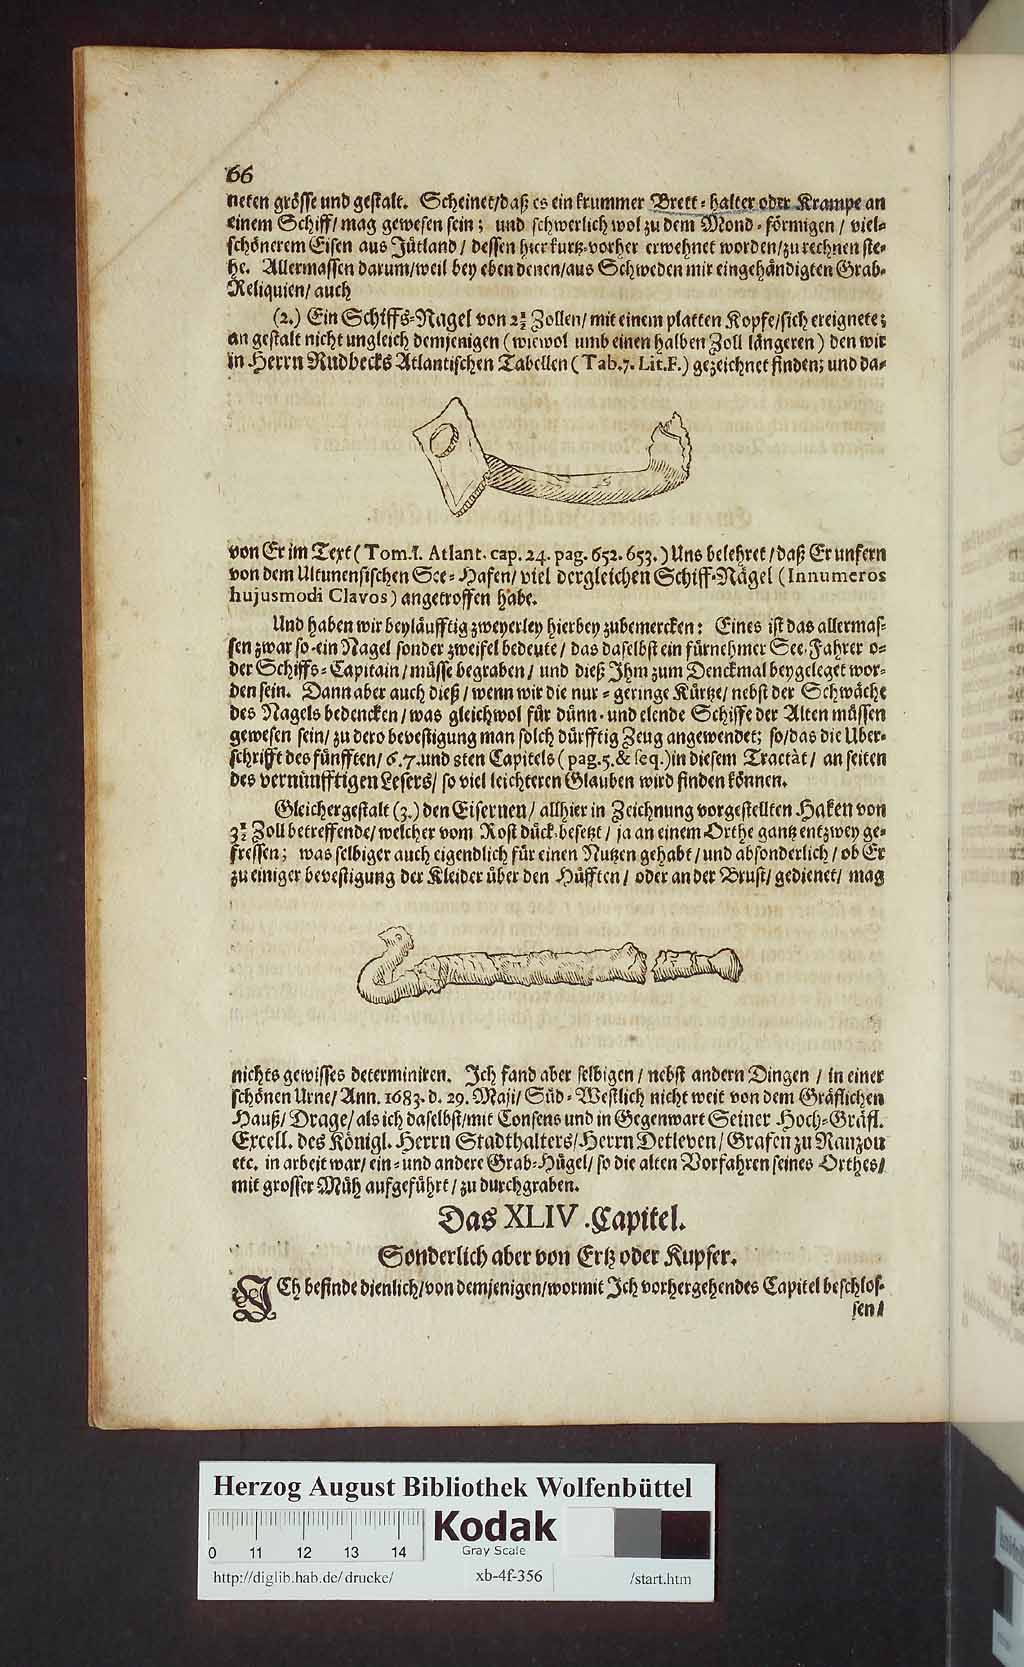 66
neten grösse und gestalt. Scheinet/daß es ein krummer Brett-halter oder Krampe an
einem Schiff/ mag gewesen sein; und schwerlich wol zu dem Mond-förmigen / viel-
schönerem Eisen aus Jütland / dessen hier kurtz-vorher erwehnet worden/zu rechnen ste-
he. Allermassen darum/weil bey eben denen/aus Schweden mir eingehändigten Grab-
Reliquien/ auch
(2.) Ein Schiffs-Nagel von 2½ Zollen/ mit einem platten Kopfe/sich ereignete;
an gestalt nicht ungleich demjenigen (wiewol umb einen halben Zoll längeren) den wir
in Herrn Rudbecks Atlantischen Tabellen (Tab.7. Lit.F.) gezeichnet finden; und da-
von Er im Text (Tom.I. Atlant. cap. 24. pag. 652. 653.) Uns belehret / daß Er unfern
von dem Ultunensischen See-Hafen/ viel dergleichen Schiff-Nägel (Innumeros
hujusmodi Clavos) angetroffen habe.
Und haben wir beyläufftig zweyerley hierbey zubemercken: Eines ist das allermas-
sen zwar so-ein Nagel sonder zweifel bedeute / das daselbst ein fürnehmer See-Fahrer o-
der Schiffs-Capitain / müsse begraben / und dieß Ihm zum Denckmal beygeleget wor-
den sein. Dann aber auch dieß / wenn wir die nur-geringe Kürtze/ nebst der Schwäche
des Nagels bedencken / was gleichwol für dünn- und elende Schiffe der Alten müssen
gewesen sein/ zu dero bevestigung man solch dürfftig Zeug angewendet; so/das die Uber-
schrifft des fünfften/ 6. 7. und 8ten Capitels (pag.5. & seq.) in diesem Tractàt/ an seiten
des vernünfftigen Lesers/ so viel leichteren Glauben wird finden können.
Gleichergestalt (3.) den Eisernen/ allhier in Zeichnung vorgestellten Haken von
3½ Zoll betreffende/ welcher vom Rost dück-besetzt / ja an einem Orthe gantz entzwey ge-
fressen; was selbiger auch eigendlich für einen Nutzen gehabt / und absonderlich / ob Er
zu einiger bevestigung der Kleider über den Hüfften / oder an der Brust/ gedienet/ mag
nichts gewisses determiniren. Ich fand aber selbigen / nebst andern Dingen / in einer
schönen Urne/ Ann. 1683. d. 29. Maji/ Süd-Westlich nicht weit von dem Gräflichen
Hauß/ Drage/ als ich daselbst/mit Consens und in Gegenwart Seiner Hoch-Gräfl.
Excell. des Königl. Herrn Stadthalters/Herrn Detleven/ Grafen zu Ranzou
etc. in arbeit war/ ein- und andere Grab-Hügel/ so die alten Vorfahren seines Orthes/
mit grosser Müh aufgeführt / zu durchgraben.
Das XLIV. Capitel.
Sonderlich aber von Ertz oder Kupfer.
ICh befinde dienlich/von demjenigen/wormit Ich vorhergehendes Capitel beschlos-
sen/
Herzog August Bibliothek Wolfenbüttel
Kodak
Gray Scale
0 11 12 13 14
http://diglib.hab.de/drucke/ xb-4f-356 /start.htm